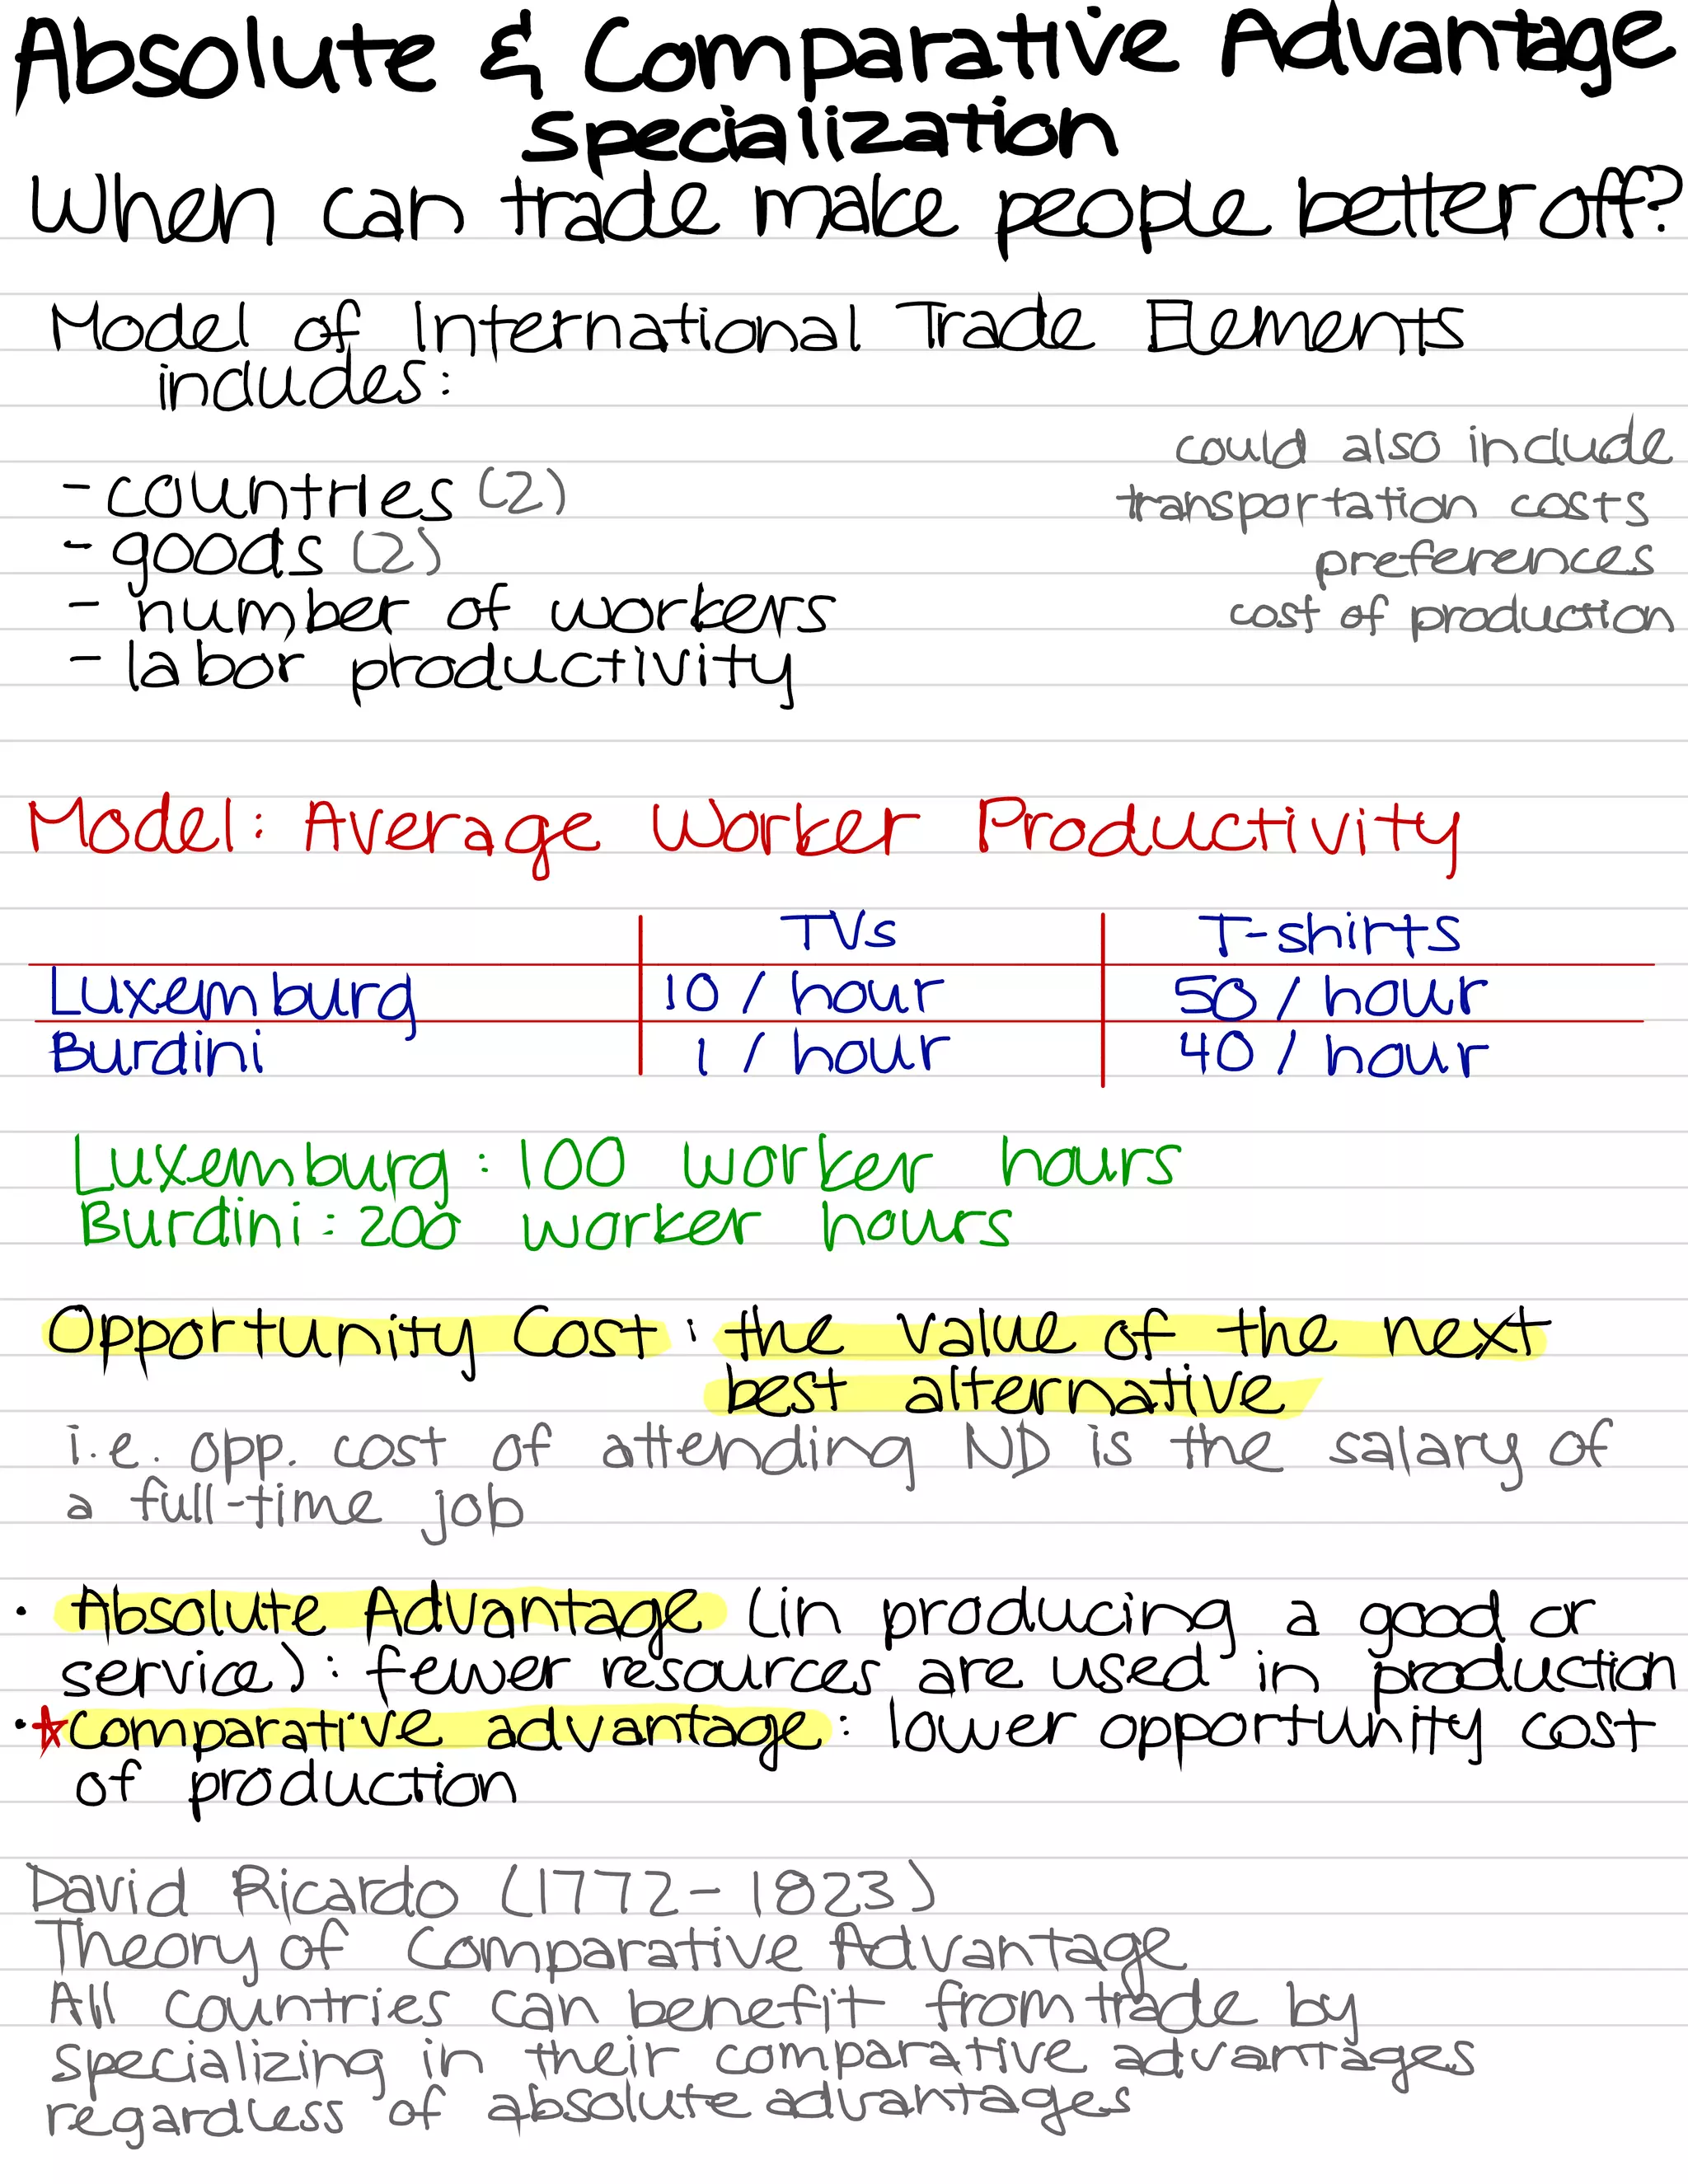 Absolute & Comparative Advantage
specialization
When can trade make people better off?
Model of International Trade Elements
includes:
could also include
- countries (2)
transportation costs
- goods (2)
preferences
- number of workers
cost of production
- labor productivity
Model: Average Worker Productivity
TVs T-shirts
Luxemburg 10 / hour 50 / hour
Burdini 1 / hour 40 / hour
Luxemburg: 100 worker hours
Burdini: 200 worker hours
Opportunity Cost: the value of the next
best alternative
i.e. opp. cost of attending ND is the salary of
a full-time job
• Absolute Advantage (in producing a good or
service): fewer resources are used in production
• ☆ comparative advantage: lower opportunity cost
of production
David Ricardo (1772-1823)
Theory of Comparative Advantage
All countries can benefit from trade by
specializing in their comparative advantages
regardless of absolute advantages